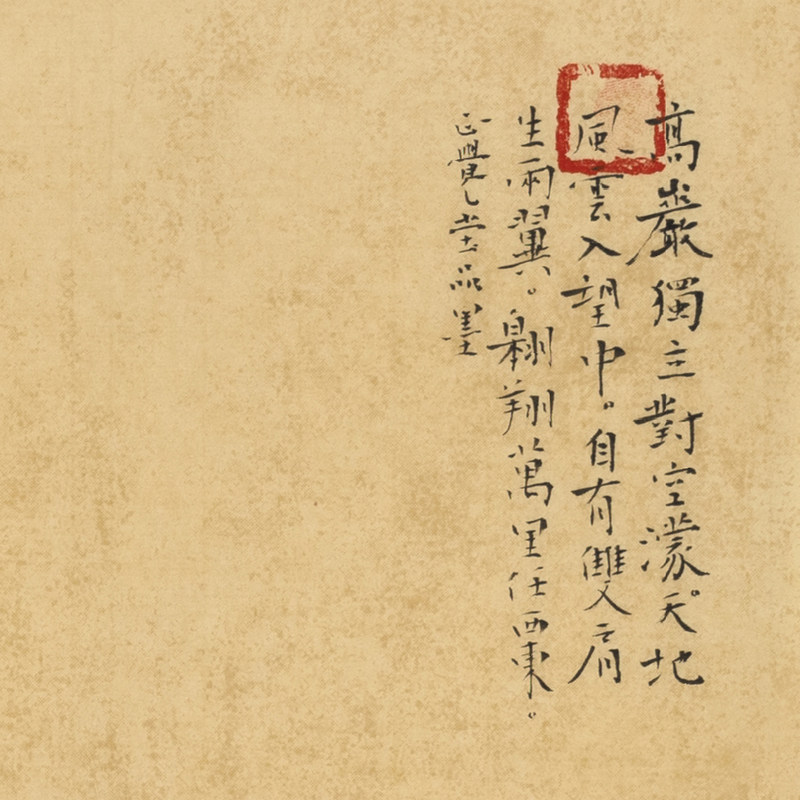 高巖獨立對空濛。天地
風雲入望中。自有雙肩
生兩翼。翱翔萬里任西東。
正覺堂品墨